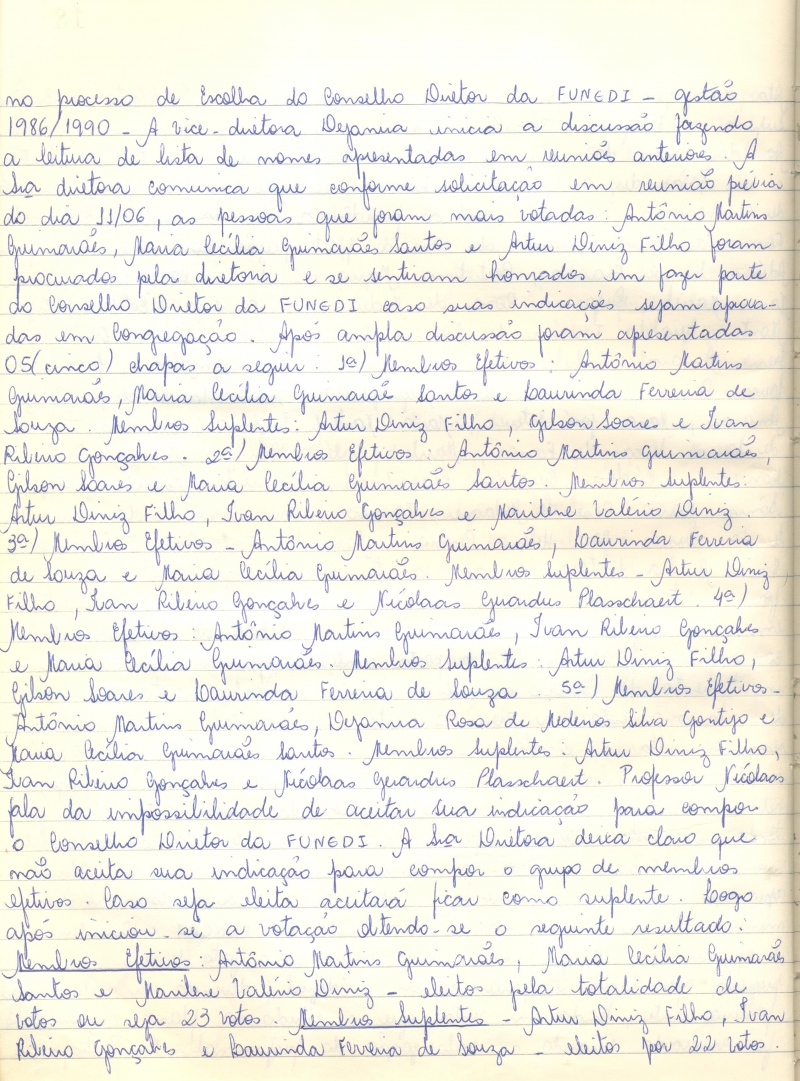 no processo de Escolha do Conselho Diretor da FUNEDI - gestão
1986/1990 - A vice-diretora Dejanira inicia a discussão fazendo
a leitura de lista de nomes apresentadas em reuniões anteriores. A
Sra diretora comunica que conforme solicitação em reunião prévia
do dia 11/06, as pessoas que foram mais votadas: Antônio Martins
Guimarães, Maria Cecília Guimarães Santos e Artur Diniz Filho foram
procurados pela diretoria e se sentiram honrados em fazer parte
do Conselho Diretor da FUNEDI caso suas indicações sejam aprova-
das em Congregação. Após ampla discussão foram apresentadas
05(cinco) chapas a seguir. 1ª) Membros Efetivos: Antônio Martins
Guimarães, Maria Cecília Guimarãe Santos e Laurinda Ferreira de
Souza. Membros Suplentes: Artur Diniz Filho, Gilson Soares e Ivan
Ribeiro Gonçalves. 2ª) Membros Efetivos: Antônio Martins Guimarães,
Gilson Soares e Maria Cecília Guimarães Santos. Membros Suplentes:
Artur Diniz Filho, Ivan Ribeiro Gonçalves e Marilene Valério Diniz.
3ª) Membros Efetivos - Antônio Martins Guimarães, Laurinda Ferreira
de Souza e Maria Cecília Guimarães. Membros Suplentes - Artur Diniz
Filho, Ivan Ribeiro Gonçalves e Nicolaas Gerardus Plasschaert. 4ª)
Membros Efetivos: Antônio Martins Guimarães, Ivan Ribeiro Gonçalves
e Maria Cecília Guimarães. Membros Suplentes: Artur Diniz Filho,
Gilson Soares e Laurinda Ferreira de Souza. 5ª) Membros Efetivos -
Antônio Martins Guimarães, Dejanira Rosa de Medeiros Silva Gontijo e
Maria Cecília Guimarães Santos. Membros Suplentes: Artur Diniz Filho,
Ivan Ribeiro Gonçalves e Nicolaas Gerardus Plasschaert. Professor Nicolaas
fala da impossibilidade de aceitar sua indicação para compor
o Conselho Diretor da FUNEDI. A Sra Diretora deixa claro que
não aceita sua indicação para compor o grupo de membros
efetivos. Caso seja eleita aceitará ficar como suplente. Logo
após iniciou-se a votação obtendo-se o seguinte resultado:
Membros Efetivos: Antônio Martins Guimarães, Maria Cecília Guimarães
Santos e Marilene Valério Diniz - eleitos pela totalidade de
votos ou seja 23 votos. Membros Suplentes - Artur Diniz Filho, Ivan
Ribeiro Gonçalves e Laurinda Ferreira de Souza - eleitos por 22 votos.